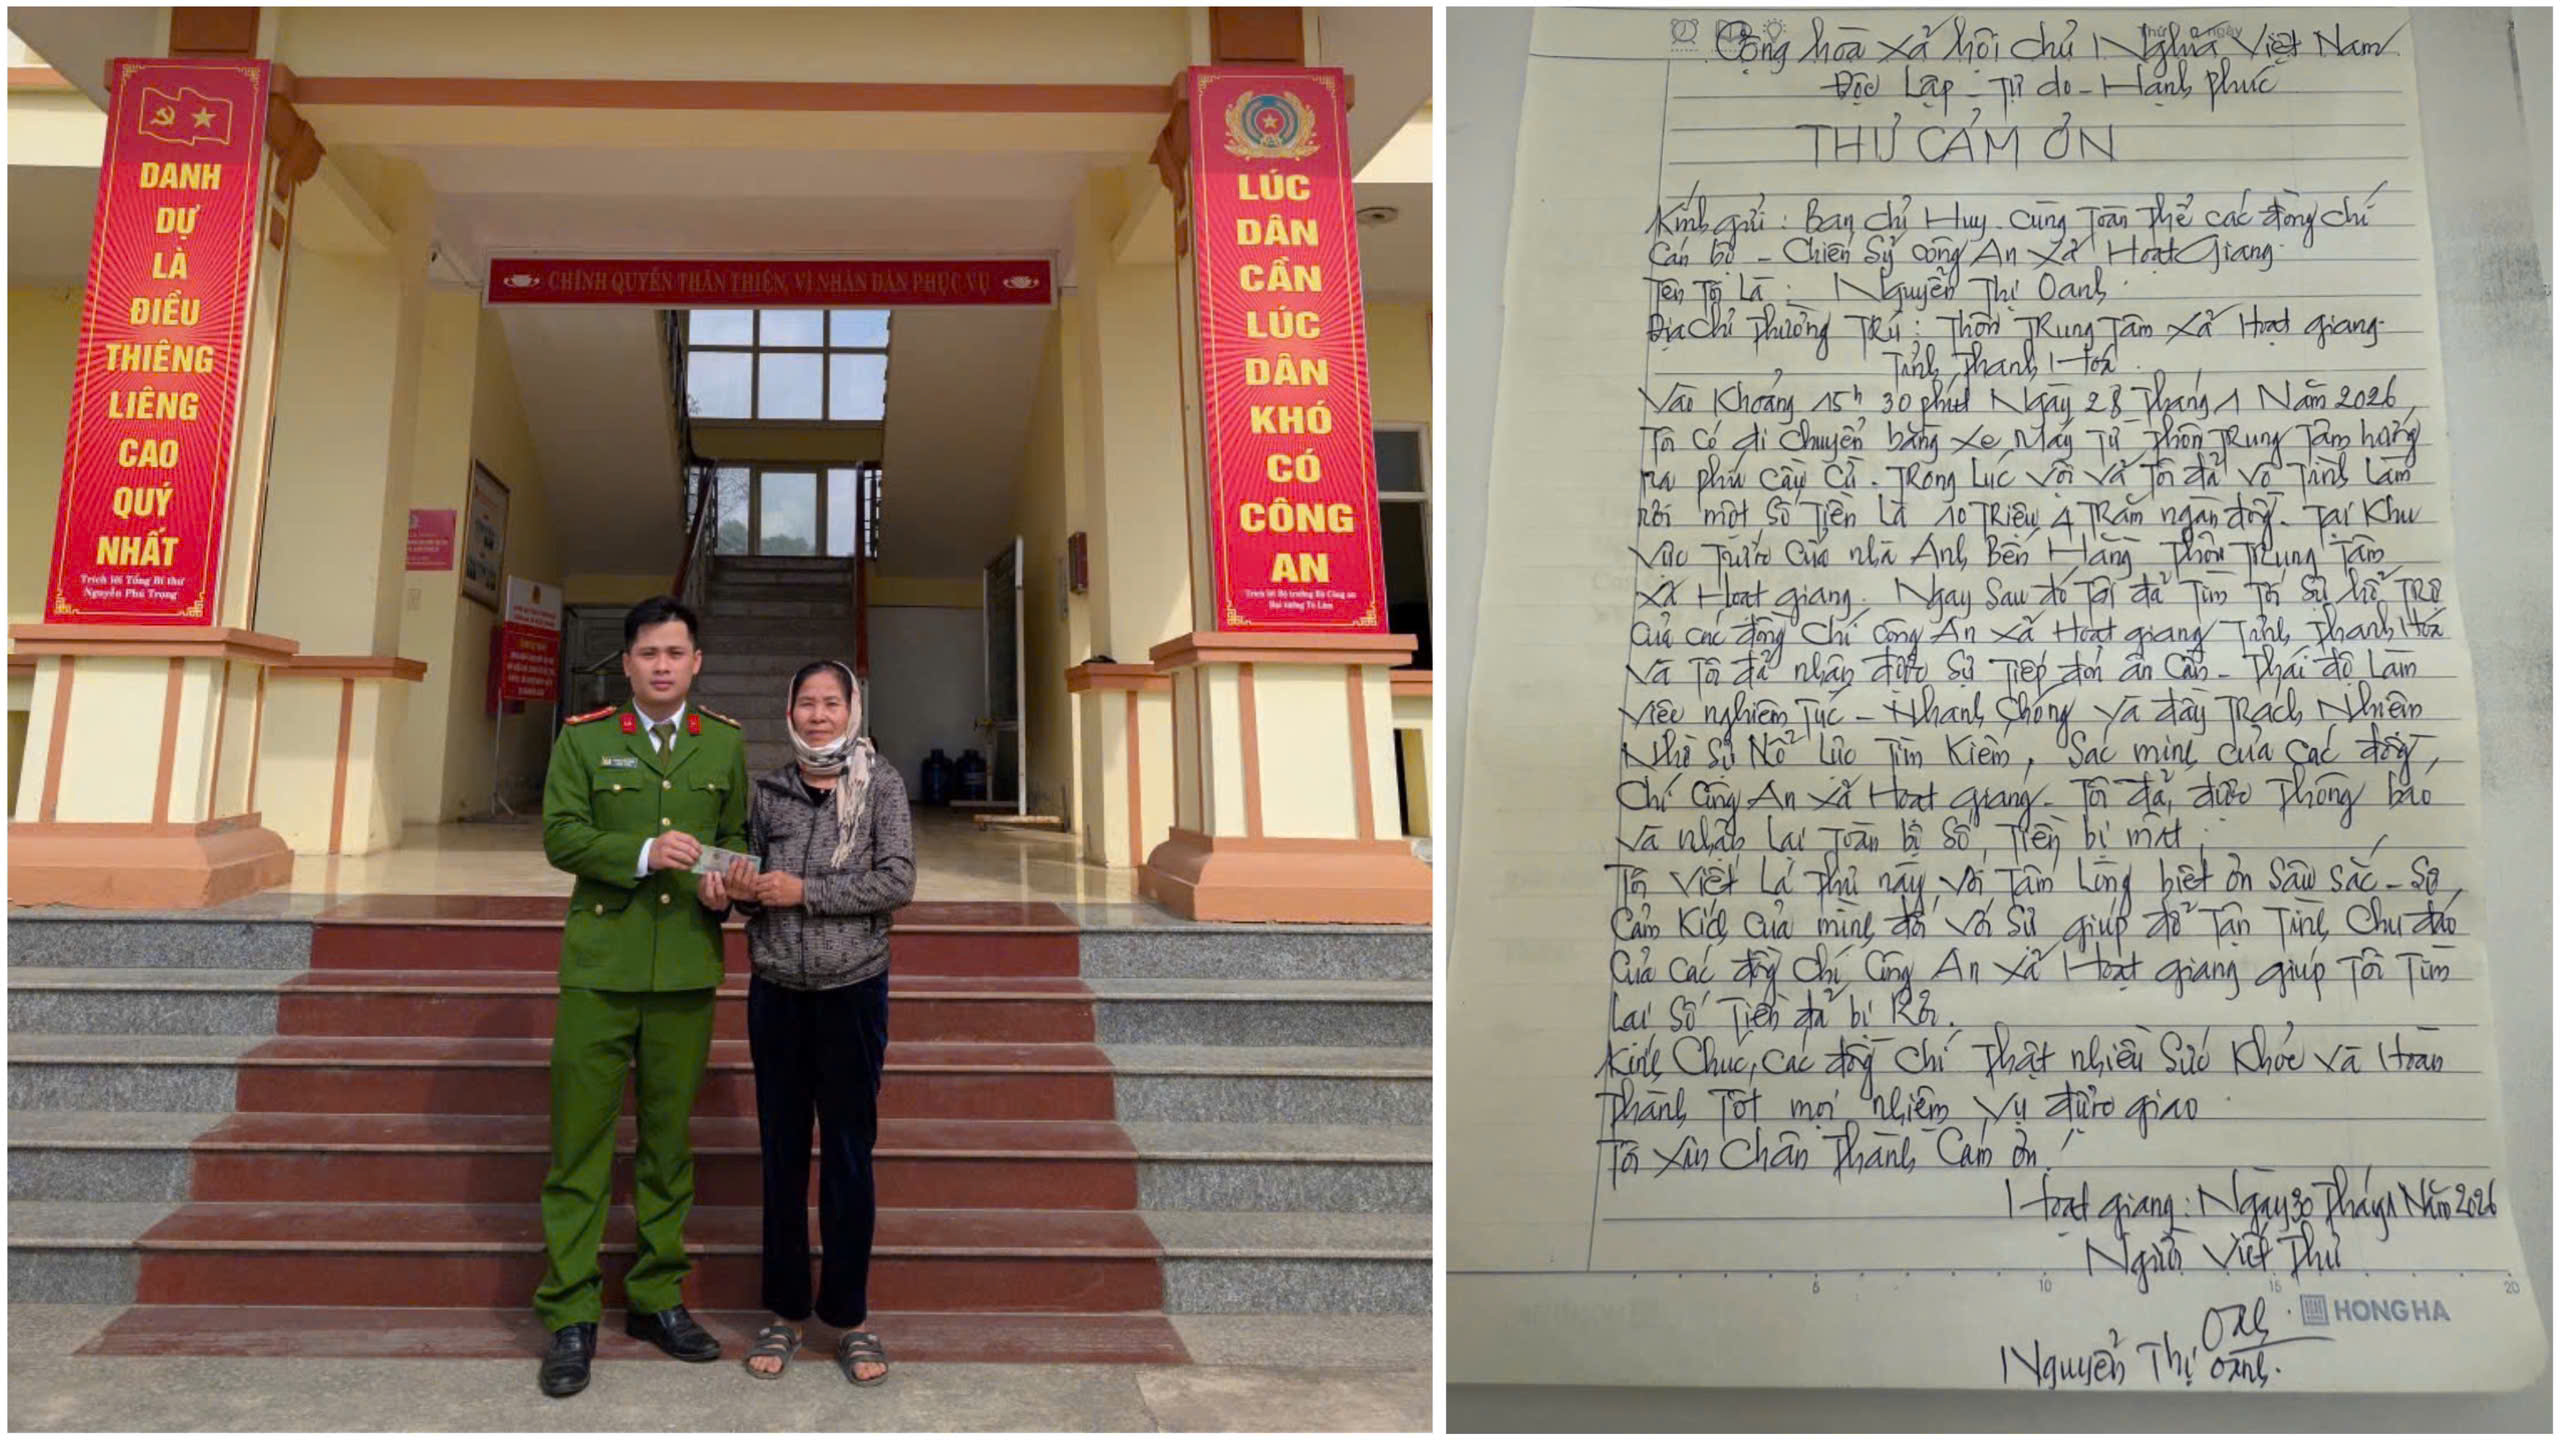 DANH
DỰ
LÀ
ĐIỀU
THIÊNG
LIÊNG
CAO
QUÝ
NHẤT
Trích lời Tổng Bí thư
Nguyễn Phú Trọng
CHÍNH QUYỀN THÂN THIỆN, VÌ NHÂN DÂN PHỤC VỤ
LÚC
DÂN
CẦN
LÚC
DÂN
KHÓ
CÓ
CÔNG
AN
Trích lời Bộ trưởng Bộ Công an
Đại tướng Tô Lâm
Cộng hoà xã hội chủ Nghĩa Việt Nam
Độc Lập - Tự do - Hạnh phúc
THƯ CẢM ƠN
Kính gửi : Ban chỉ Huy cùng Toàn thể các đồng chí
Cán bộ - Chiến Sỹ công An xã Hoạt Giang.
Tên Tôi Là : Nguyễn Thị Oanh.
Địa chỉ Thường Trú : Thôn Trung Tâm xã Hoạt giang.
Tỉnh Thanh Hoá.
Vào Khoảng 15h 30 phút Ngày 28 Tháng 1 Năm 2026
Tôi có di chuyển bằng xe máy Từ Thôn Trung Tâm hướng
ra phía Cầu Cừ. Trong Lúc Vội Vã Tôi đã Vô Tình Làm
rơi một Số Tiền Là 10 Triệu 4 Trăm ngàn đồng. Tại Khu
Vực Trước Cửa nhà Anh Bến Hằng Thôn Trung Tâm
xã Hoạt giang. Ngay Sau đó Tôi đã Tìm Tới Sự hỗ Trợ
Của các đồng Chí công An xã Hoạt giang Tỉnh Thanh Hoá
Và Tôi đã nhận được Sự Tiếp đón ân Cần - Thái độ Làm
Việc nghiêm Túc - Nhanh Chóng Và đầy Trách Nhiệm
Nhờ Sự Nỗ Lực Tìm Kiếm, Xác minh của các đồng
Chí Công An xã Hoạt giang. Tôi đã được Thông báo
Và nhận Lại Toàn bộ Số Tiền bị mất.
Tôi Viết Lá Thư này Với Tấm Lòng biết ơn Sâu Sắc - Sự
Cảm Kích Của mình đối Với Sự giúp đỡ Tận Tình Chu đáo
Của Các đồng chí Công An xã Hoạt giang giúp Tôi Tìm
Lại Số Tiền đã bị Rơi.
Kính Chúc Các đồng Chí Thật nhiều Sức Khỏe Và Hoàn
Thành Tốt mọi nhiệm Vụ được giao
Tôi xin Chân Thành Cảm ơn!
Hoạt giang : Ngày 30 Tháng 1 Năm 2026
Người Viết Thư
5 10 15 20
HONG HA
Oanh
Nguyễn Thị Oanh.